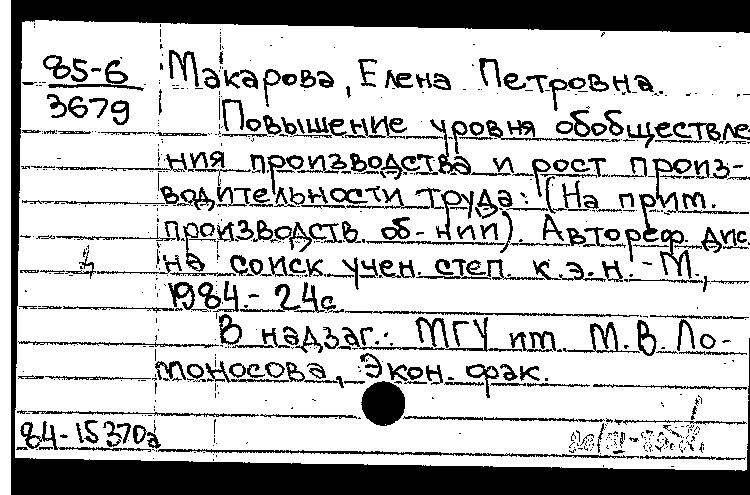 85-6
3679
Макарова, Елена Петровна.
Повышение уровня обобществле
ния производства и рост произ-
водительности труда: (На прим.
производств. об-нии). Автореф. дис.
на соиск. учен. степ. к.э.н. - М.,
1984. - 24с.
В надзаг.: МГУ им. М.В. Ло-
моносова, Экон. фак.
84-15370а